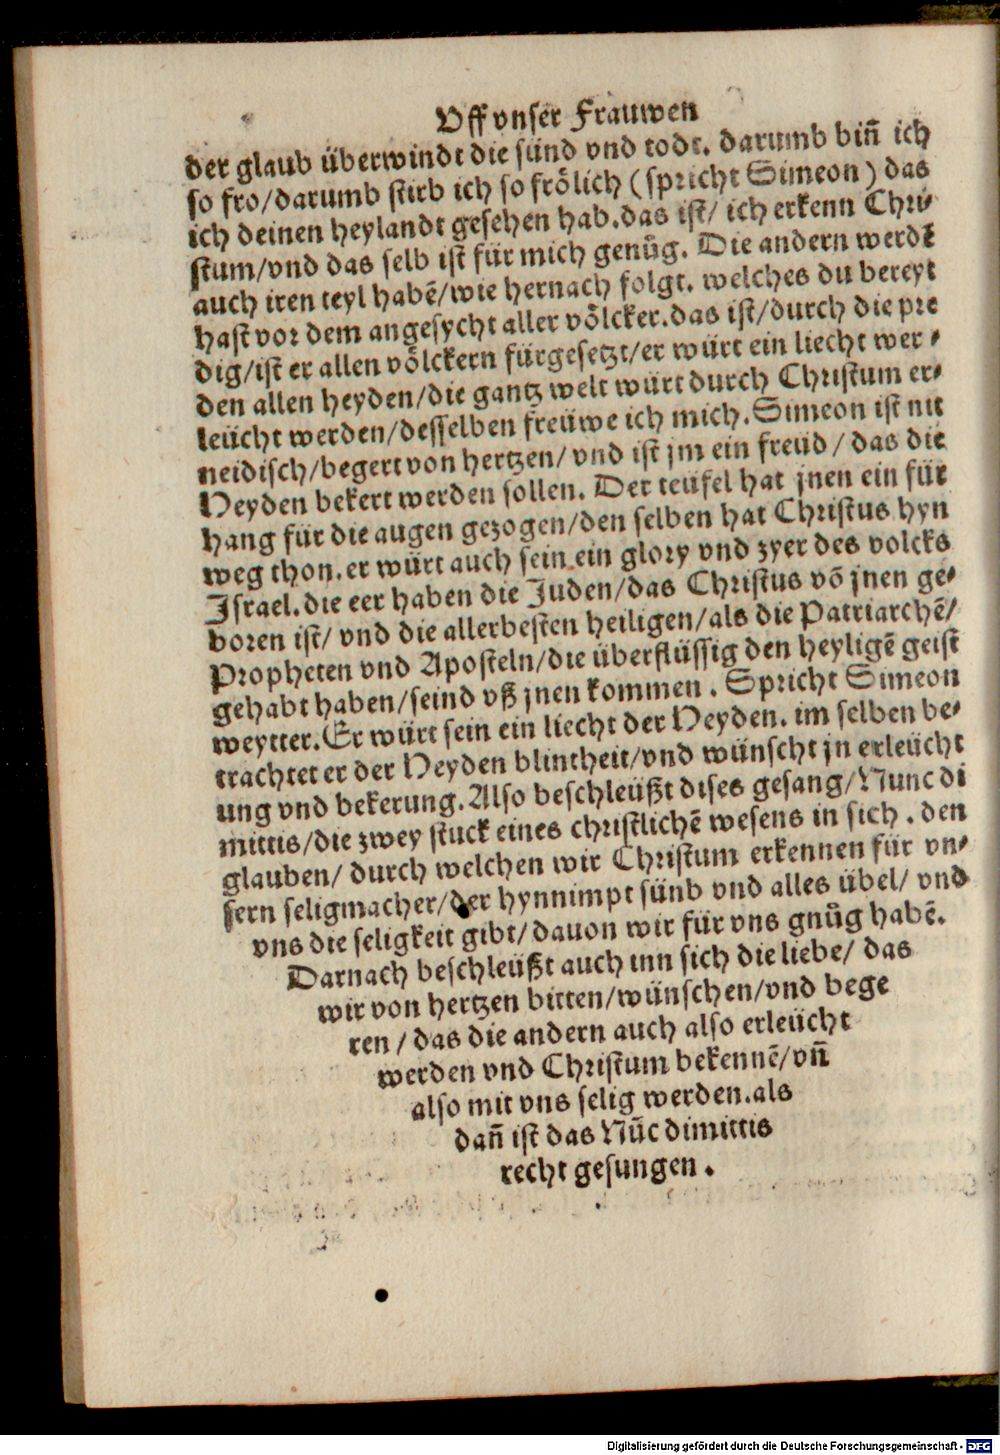 Uff vnser Frauwen
der glaub überwindt die sünd vnd todt. darumb biñ ich
so fro/darumb stirb ich so frölich (spricht Simeon) das
ich deinen heylandt gesehen hab.das ist/ ich erkenn Chri⸗
stum/vnd das selb ist für mich genůg. Die andern werdẽ
auch iren teyl habẽ/wie hernach folgt. welches du bereyt
hast vor dem angesycht aller völcker.das ist/durch die pre
dig/ist er allen völckern fürgesetzt/er würt ein liecht wer⸗
den allen heyden/die gantz welt würt durch Christum er⸗
leücht werden/desselben freüwe ich mich.Simeon ist nit
neidisch/begert von hertzen/ vnd ist jm ein freüd/ das die
Heyden bekert werden sollen. Der teüfel hat jnen ein für
hang für die augen gezogen/den selben hat Christus hyn
weg thon.er würt auch sein ein glory vnd zyer des volcks
Israel.die eer haben die Juden/das Christus võ jnen ge⸗
boren ist/ vnd die allerbesten heiligen/als die Patriarchẽ/
Propheten vnd Aposteln/die überflüssig den heyligẽ geist
gehabt haben/seind vß jnen kommen. Spricht Simeon
weytter.Er würt sein ein liecht der Heyden. im selben be⸗
trachtet er der Heyden blintheit/vnd wünscht jn erleücht
ung vnd bekerung.Also beschleüßt dises gesang/Nunc di
mittis/die zwey stuck eines christlichẽ wesens in sich. den
glauben/ durch welchen wir Christum erkennen für vn⸗
sern seligmacher/der hynnimpt sünb vnd alles übel/ vnd
vns die seligkeit gibt/dauon wir für vns gnůg habẽ.
Darnach beschleüßt auch inn sich die liebe/ das
wir von hertzen bitten/wünschen/vnd bege
ren/ das die andern auch also erleücht
werden vnd Christum bekennẽ/vñ
also mit vns selig werden.als
dañ ist das Nũc dimittis
recht gesungen.
Digitalisierung gefördert durch die Deutsche Forschungsgemeinschaft - DFG